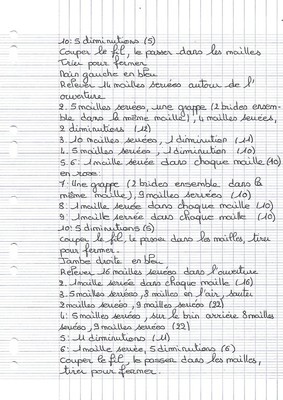 10: 5 diminutions (5)
Couper le fil, le passer dans les mailles
Tirer pour fermer
Main gauche en bleu
Relever 14 mailles serrées autour de l'
ouverture
2. 5 mailles serrées, une grappe (2 brides ensem-
ble dans la même maille), 4 mailles serrées,
2 diminutions (12)
3. 10 mailles serrées, 1 diminution (11)
4. 5 mailles serrées, 1 diminution (10)
5.6: 1 maille serrée dans chaque maille (10)
en rose:
7: Une grappe (2 brides ensemble dans la
même maille), 9 mailles serrées (10)
8: 1 maille serrée dans chaque maille (10)
9: 1 maille serrée dans chaque maille (10)
10: 5 diminutions (5)
couper le fil, le passer dans les mailles, tirer
pour fermer.
Jambe droite en bleu
Relever 16 mailles serrées dans l'ouverture
2. 1 maille serrée dans chaque maille (16)
3. 5 mailles serrées, 8 mailles en l'air, sauter
2 mailles serrées, 9 mailles serrées (22)
4: 5 mailles serrées, sur le brin arrière 8 mailles
serrées, 9 mailles serrées (22)
5: 11 diminutions (11)
6: 1 maille serrée, 5 diminutions (6)
Couper le fil, le passer dans les mailles,
tirer pour fermer.